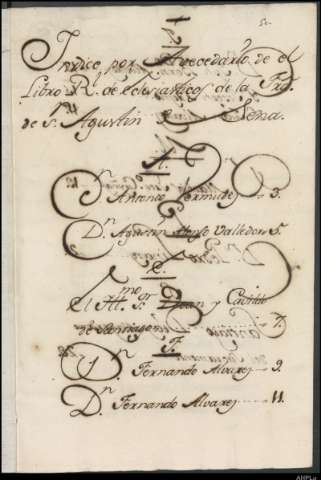 Yndice por Avecedario de el
Libro Rl. de eclesiasticos de la Frd.
de Sn. Agustin
A.
Sn. Antonio Bermudez 3.
Dn. Agustin Alonso Valledor 5.
C.
El Illmo. Sr. y Cavildo
de Santiago 7.
F.
Dn. Fernando Alvarez 9.
Dn. Fernando Alvarez 11.
AHPLu